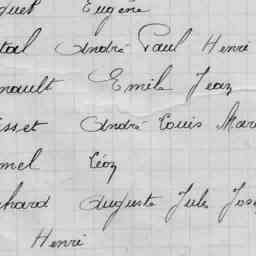 quet Eugène
tal André Paul Henri
nault Emile Jean
sset André Louis Mar
mel Léon
chard Auguste Jules Jos
Henri